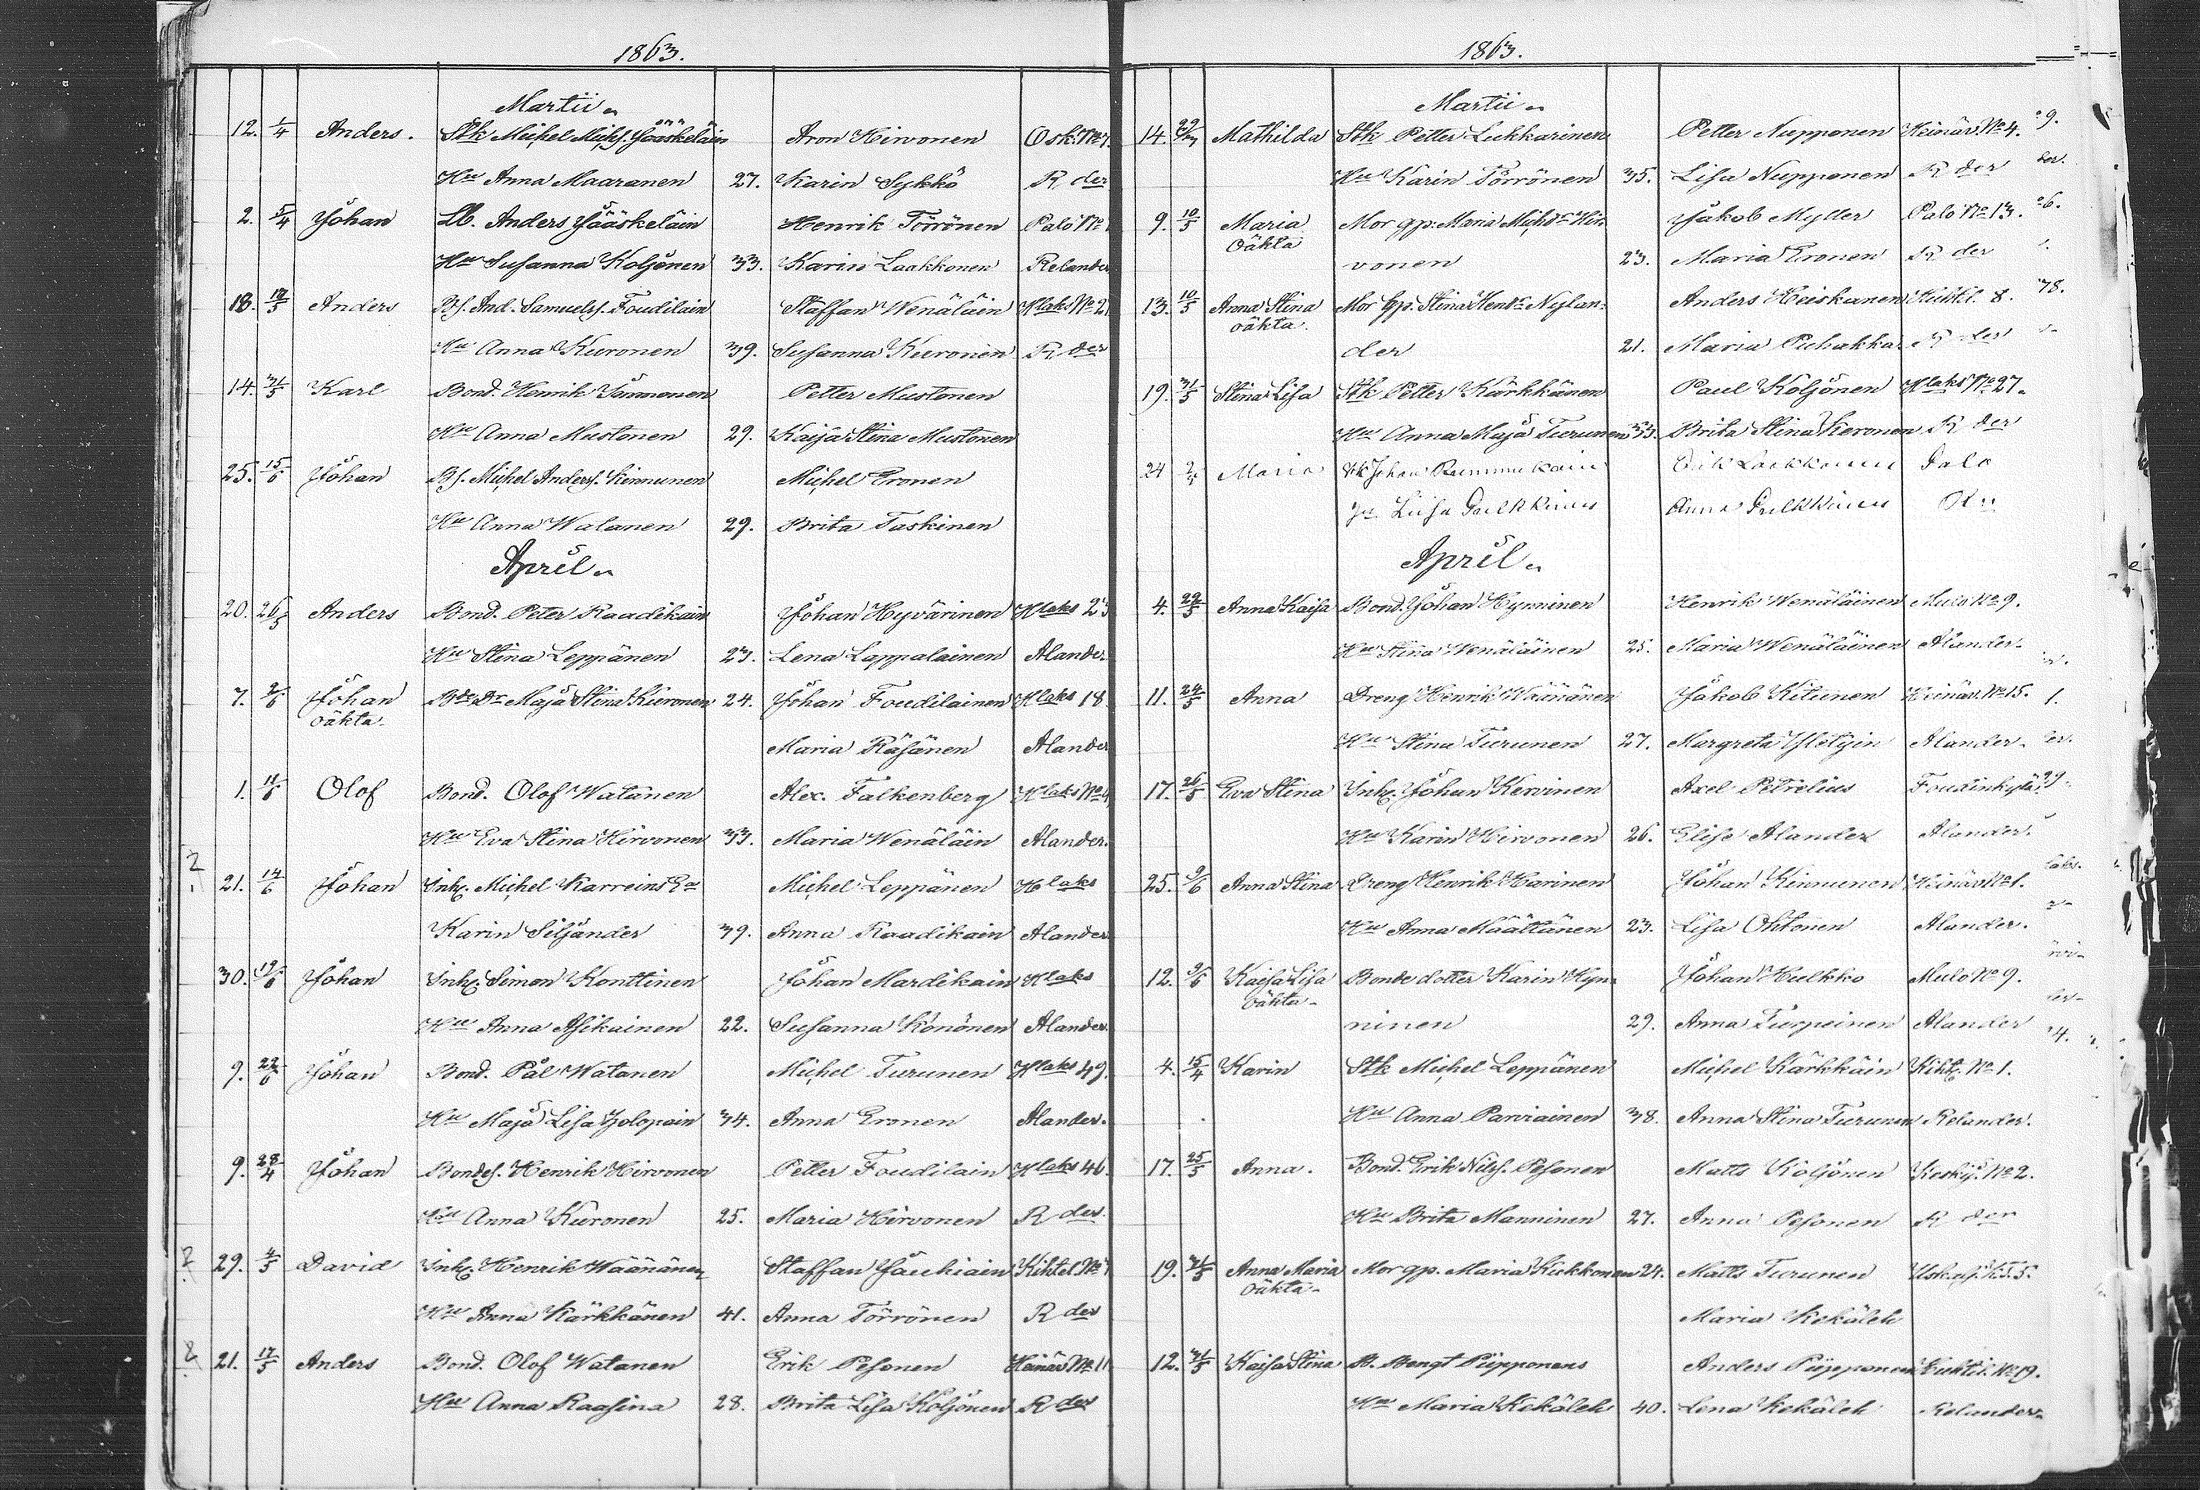 1863.
Martii
12. 1/4 Anders. Stk Michel Michs. Jääskeläin Aron Hirvonen Osk. No
Hu Anna Maaranen 27. Karin Sykkö R der
2. 5/4 Johan Lb. Anders Jääskeläin Henrik Törrönen Palo No
Hu Susanna Koljonen 33. Karin Laakkonen Relander
18. Anders Bs. And. Samuels. Foudilain Staffan Wenäläin Hlaks No 2
Hu Anna Kuronen 39. Susanna Kuronen R der
14. 31/5 Karl Bond. Henrik Mustonen Petter Mustonen
Hu Anna Mustonen 29. Kaija Stina Mustonen
25. 15/6 Johan Bs. Michel Anders. Kinnunen Michel Eronen
Hu Anna Walanen 29. Brita Taskinen
April
20. 26/5 Anders Bond. Peter Raadikain Johan Hyvärinen Hlaks 23
Hu Stina Leppänen 23. Lena Lappalainen Alander
7. Johan Bde Dr Maja Stina Kuronen 24. Johan Foudilainen Hlaks 18
oäkta. Maria Räsänen Alander
1. 11/6 Olof Bond. Olof Watanen Alex. Falkenberg Hlaks No 4
Hu Eva Stina Hirvonen 33. Maria Wenäläin Alander.
21. 14/6 Johan Inh. Michel Karreins Ea Michel Leppänen Hlaks
Karin Siljander 39. Anna Raadikain Alander
30. 19/6 Johan Inh. Simon Konttinen Johan Mardikain Hlaks
Hu Anna Asikainen 22. Susanna Konönen Alander.
9. 22/6 Johan Bond. Pål Watanen Michel Turunen Hlaks 49.
Hu Maja Lisa Jolopain 34. Anna Eronen Alander.
9. 28/4 Johan Bondes. Henrik Hirvonen Petter Foudilain Hlaks 46.
Hu Anna Kuronen 25. Maria Hirvonen R der
29. 4/5 David Inh. Henrik Wäänänen Staffan Jauhiain Kihtel. No
Hu Anna Kärkkänen 41. Anna Törrönen R der
21. 17/5 Anders Bond. Olof Watanen Erik Pesonen Heinäv. No 11
Hu Anna Raasina 28. Brita Lisa Koljonen R der
1863.
Martii
14. Mathilda Stk Petter Lukkarinen Petter Nupponen Heinäv. No 4.
Hu Karin Törrönen 35. Lisa Nupponen R der
9. 10/5 Maria Mor gp. Maria Michsdr Hir- Jakob Myller Palo No 13.
oäkta vonen 23. Maria Eronen R der
13. 10/5 Anna Stina Mor gp. Stina Hendr Nylan- Anders Heiskanen Kihtl. 8.
oäkta. der 21. Maria Puhakka R der
19. 31/5 Stina Lisa Stk Petter Kärkkänen Paul Koljonen Hlaks No 27.
Hu Anna Maja Turunen 33. Brita Stina Keronen R der
24 Maria Stk Johan Rummukain Erik Laakkonen Palo
Anna Pulkkinen
April
4. 22/5 Anna Kaisa Bond. Johan Hynninen Henrik Wenäläinen Mulo No 9.
Hu Stina Wenäläinen 25. Maria Wenäläinen Alander.
11. 24/5 Anna Dreng Henrik Wäänänen Jakob Kitunen Heinäv. No 15.
Hu Stina Turunen 27. Margreta Ylötyin Alander.
17. 26/5 Eva Stina Inh. Johan Kervinen Axel Petrelius Foudinkylä
Hu Karin Hirvonen 26. Elise Alander Alander.
25. 9/6 Anna Stina Dreng Henrik Harinen Johan Kinnunen Heinäv. No 1.
Hu Anna Määttänen 23. Lisa Ohtonen Alander.
12. 9/6 Kaisa Lisa Bonde dotter Karin Hyn- Johan Hulkko Mulo No 9.
oäkta ninen 29. Anna Turpeinen Alander
4. 15/4 Karin Stk Michel Leppänen Michel Kärkkäin Kiht. No 1.
Hu Anna Parviainen 38. Anna Stina Turunen Relander.
17. 25/5 Anna. Bond. Erik Nils. Pesonen Matts Koljonen Koskij. No 2.
Hu Brita Manninen 27. Anna Pesonen R der
19. 31/5 Anna Maria Mor gp. Maria Kukkonen 24. Matts Turunen
oäkta Maria Kekäleh
12. 31/5 Kaisa Stina B. Bengt Piipponens Anders Piipponen Kihtel. No 19.
Hu Maria Kekäleh 40. Lena Kekäleh Relander.